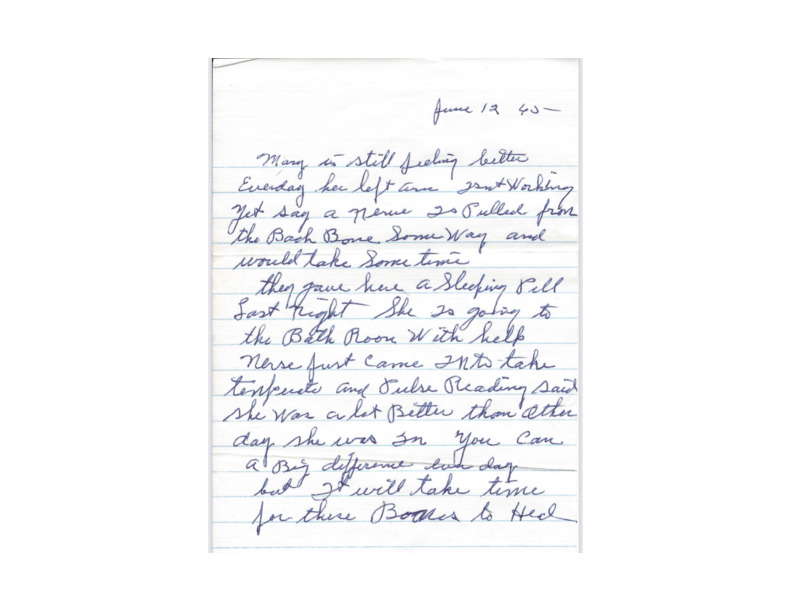 June 12 40-
Mary is still feeling better
Everday her left arm Isnt Working
Yet say a nerve Is Pulled from
the Back Bone Some Way and
would take Some time
they gave here a Sleeping Pill
Last Night She Is going to
the Bath Room With help
Nerse just Came Into take
temperate and Pulse Reading said
she Was a lot Better than Other
day she was In You Can
a Big difference ever day
but It will take time
for these Bones to Heal